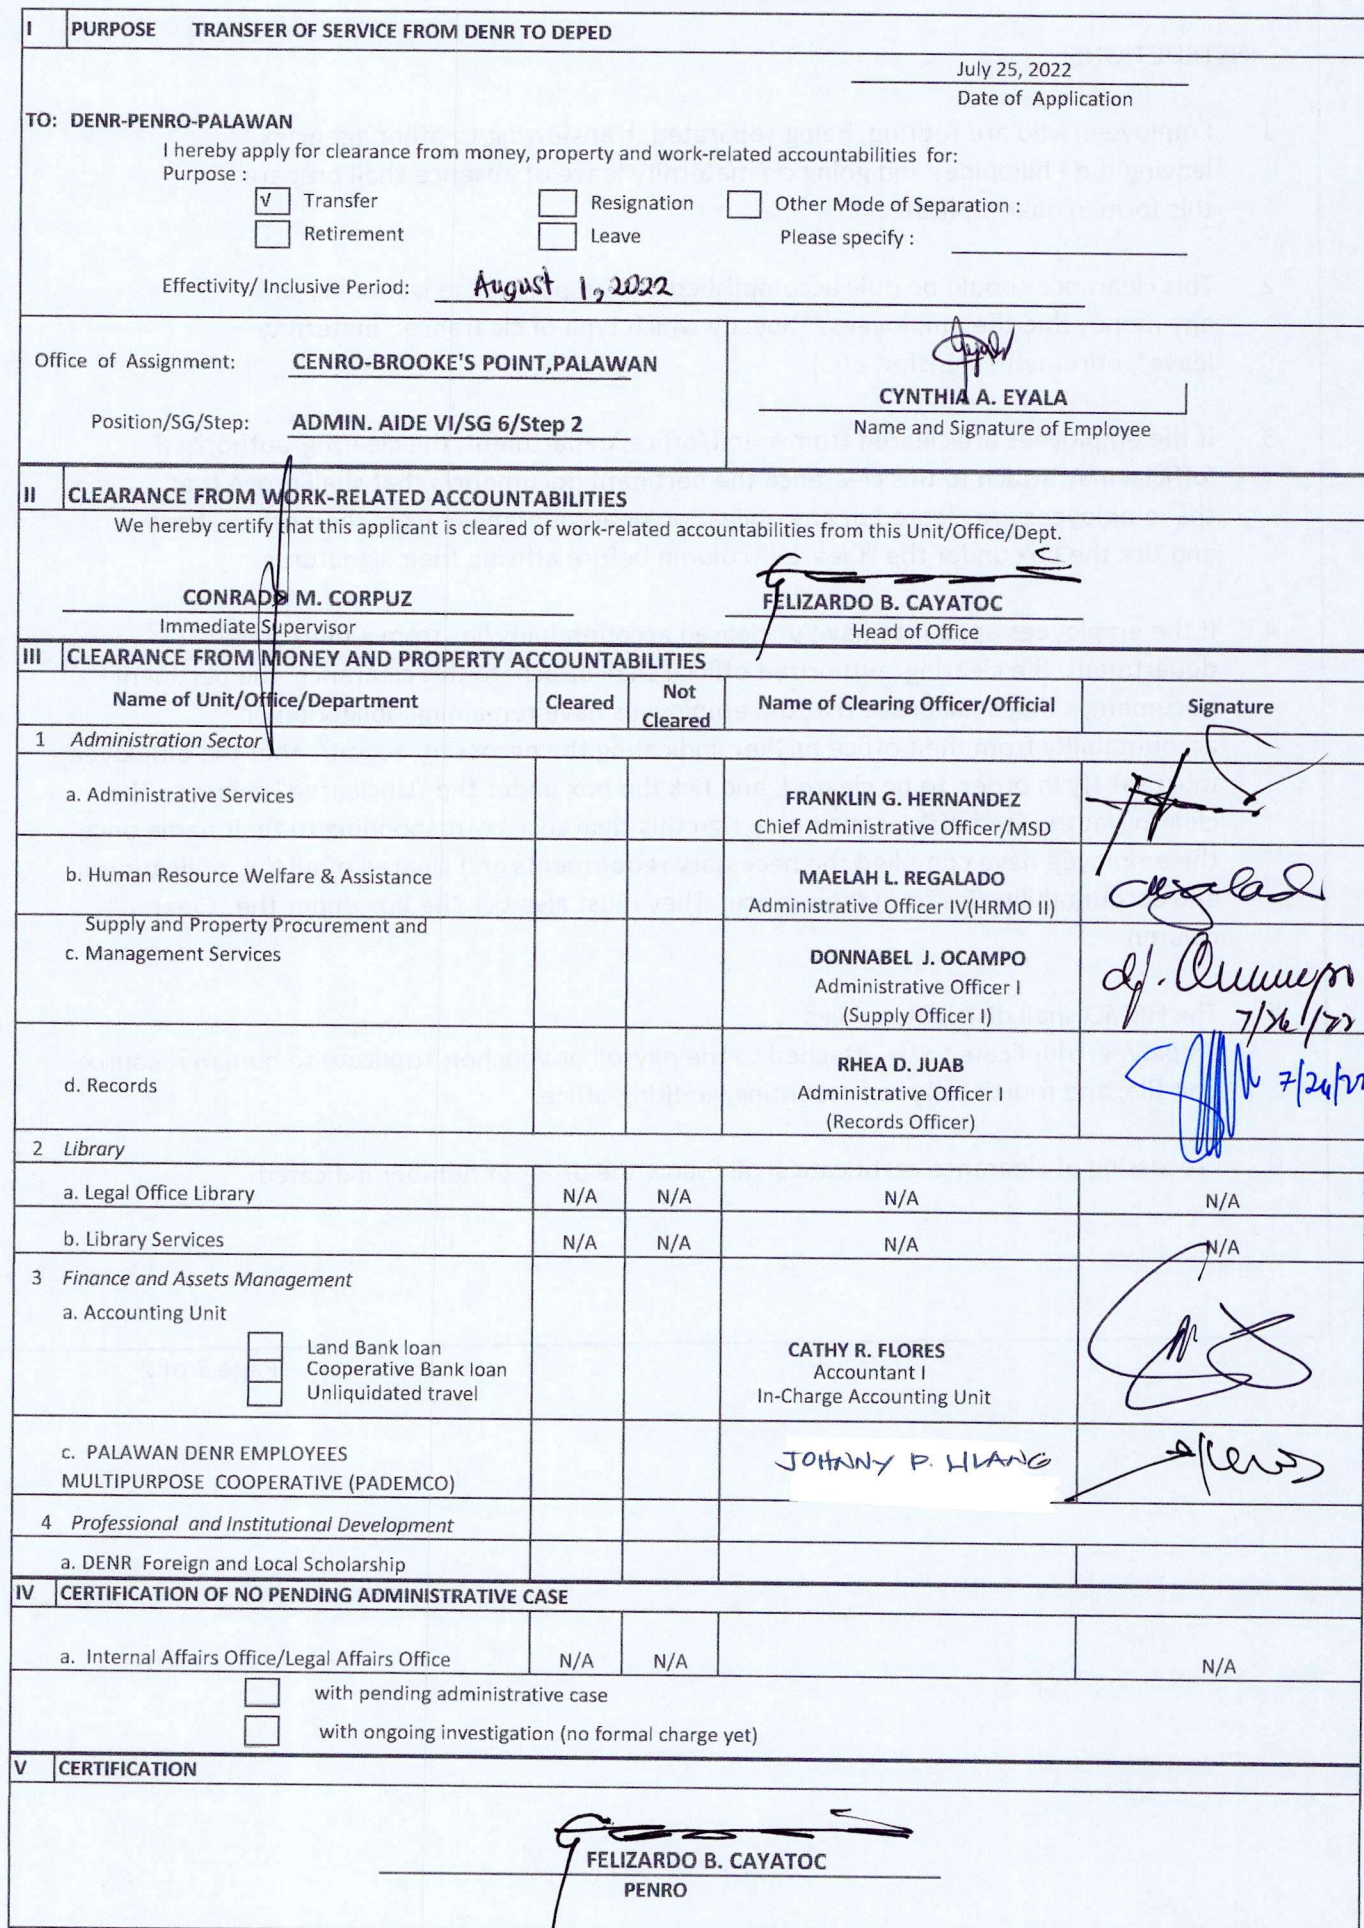 I PURPOSE TRANSFER OF SERVICE FROM DENR TO DEPED
July 25, 2022
Date of Application
TO: DENR-PENRO-PALAWAN
I hereby apply for clearance from money, property and work-related accountabilities for:
Purpose :
√ Transfer Resignation Other Mode of Separation :
Retirement Leave Please specify :
Effectivity/ Inclusive Period: August 1, 2022
Office of Assignment: CENRO-BROOKE'S POINT,PALAWAN
CYNTHIA A. EYALA
Position/SG/Step: ADMIN. AIDE VI/SG 6/Step 2
Name and Signature of Employee
II CLEARANCE FROM WORK-RELATED ACCOUNTABILITIES
We hereby certify that this applicant is cleared of work-related accountabilities from this Unit/Office/Dept.
CONRADO M. CORPUZ FELIZARDO B. CAYATOC
Immediate Supervisor Head of Office
III CLEARANCE FROM MONEY AND PROPERTY ACCOUNTABILITIES
Name of Unit/Office/Department Cleared Not Cleared Name of Clearing Officer/Official Signature
1 Administration Sector
a. Administrative Services FRANKLIN G. HERNANDEZ
Chief Administrative Officer/MSD
b. Human Resource Welfare & Assistance MAELAH L. REGALADO
Administrative Officer IV(HRMO II)
Supply and Property Procurement and
c. Management Services DONNABEL J. OCAMPO
Administrative Officer I
(Supply Officer I) 7/26/22
d. Records RHEA D. JUAB
Administrative Officer I 7/26/22
(Records Officer)
2 Library
a. Legal Office Library N/A N/A N/A N/A
b. Library Services N/A N/A N/A N/A
3 Finance and Assets Management
a. Accounting Unit
Land Bank loan CATHY R. FLORES
Cooperative Bank loan Accountant I
Unliquidated travel In-Charge Accounting Unit
c. PALAWAN DENR EMPLOYEES JOHNNY P. LILANG
MULTIPURPOSE COOPERATIVE (PADEMCO)
4 Professional and Institutional Development
a. DENR Foreign and Local Scholarship
IV CERTIFICATION OF NO PENDING ADMINISTRATIVE CASE
a. Internal Affairs Office/Legal Affairs Office N/A N/A N/A
with pending administrative case
with ongoing investigation (no formal charge yet)
V CERTIFICATION
FELIZARDO B. CAYATOC
PENRO